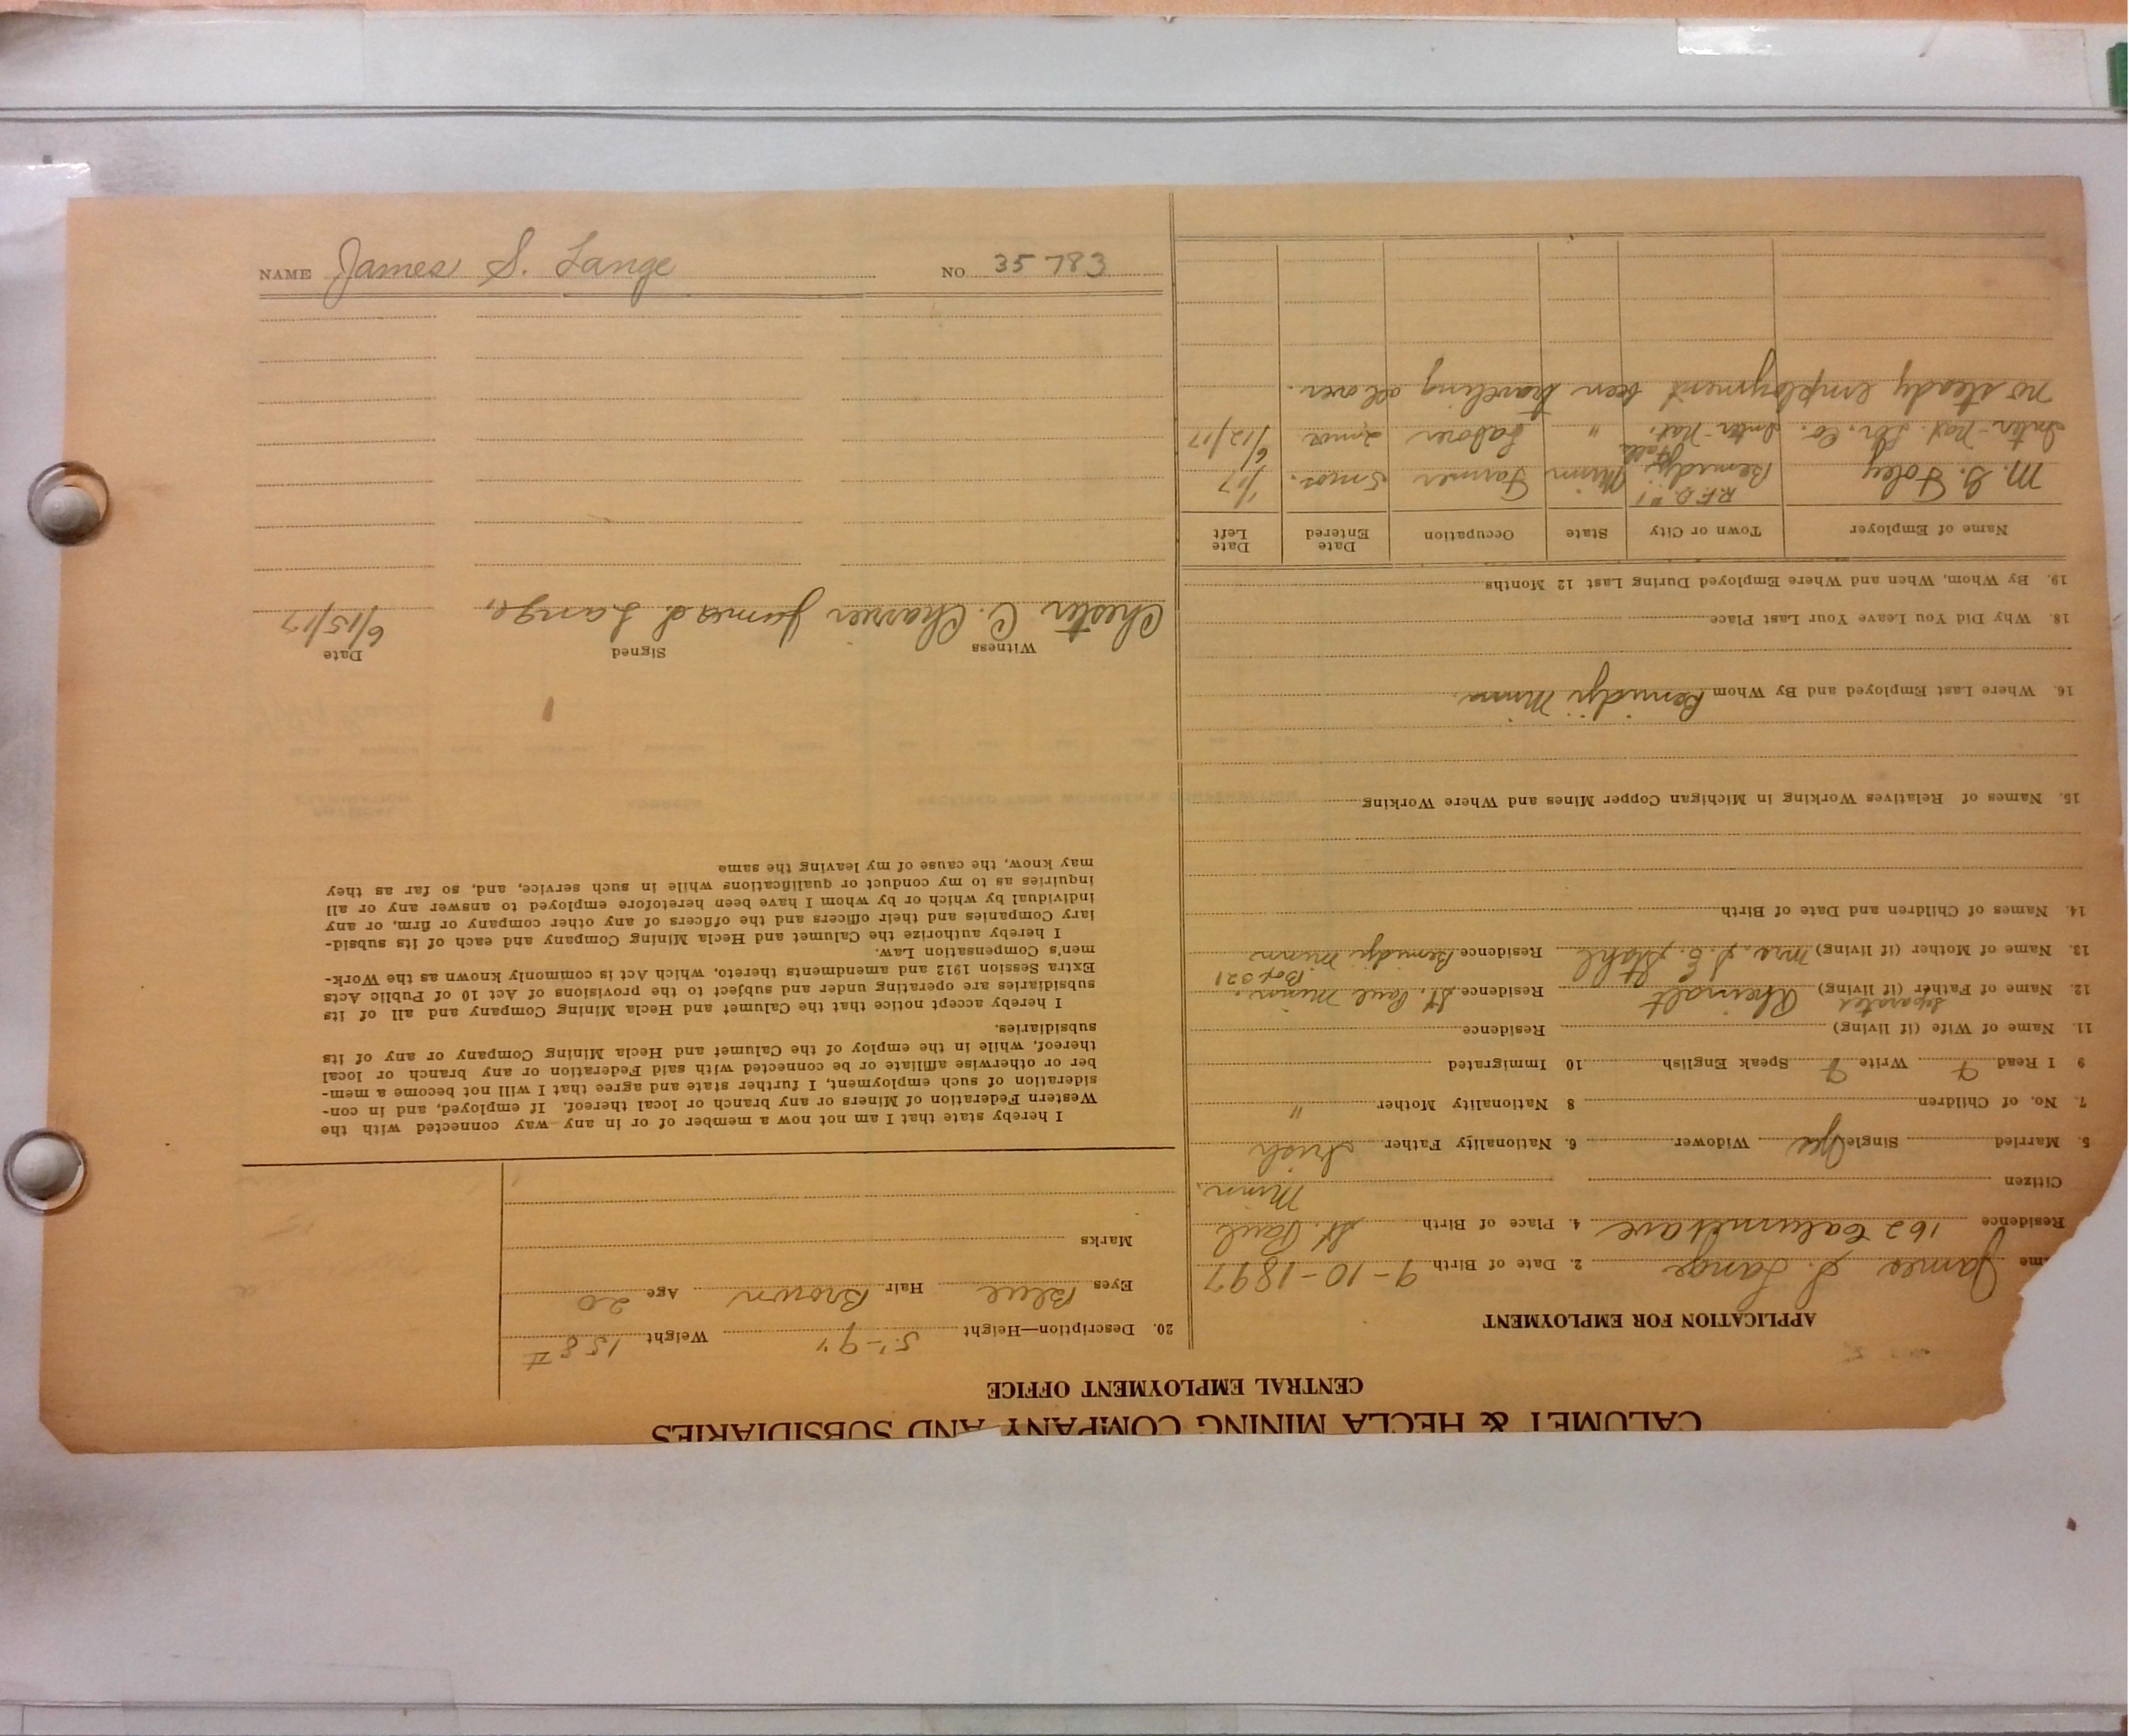 CALUMET & HECLA MINING COMPANY AND SUBSIDIARIES
CENTRAL EMPLOYMENT OFFICE
APPLICATION FOR EMPLOYMENT
me James S. Lange 2. Date of Birth 9-10-1897
Residence 162 Calumet ave 4. Place of Birth St. Paul
Citizen Minn.
5. Married Single Yes Widower 6. Nationality Father Irish
7. No. of Children 8 Nationality Mother "
9 I Read Write Speak English 10 Immigrated
11. Name of Wife (if living) Residence
separated
12. Name of Father (if living) Rheinalt Residence St. Paul Minn.
Box 521
13. Name of Mother (if living) Mrs. J. E. Stahl Residence Bemidji Minn
14. Names of Children and Date of Birth
15. Names of Relatives Working in Michigan Copper Mines and Where Working
16. Where Last Employed and By Whom Bemidji Minn.
18. Why Did You Leave Your Last Place
19. By Whom, When and Where Employed During Last 12 Months
Name of Employer Town or City State Occupation Date Entered Date Left
M. G. Foley R.F.D. #1 Bemidji Minn Farmer 5 mos. 1/17
Inter-Nat. Lbr. Co. Inter-Nat. Falls " Laborer 2 mos 6/12/17
no steady employment been traveling all over.
20. Description—Height 5'-9" Weight 158 #
Eyes Blue Hair Brown Age 20
Marks
I hereby state that I am not now a member of or in any way connected with the
Western Federation of Miners or any branch or local thereof. If employed, and in con-
sideration of such employment, I further state and agree that I will not become a mem-
ber or otherwise affiliate or be connected with said Federation or any branch or local
thereof, while in the employ of the Calumet and Hecla Mining Company or any of its
subsidiaries.
I hereby accept notice that the Calumet and Hecla Mining Company and all of its
subsidiaries are operating under and subject to the provisions of Act 10 of Public Acts
Extra Session 1912 and amendments thereto, which Act is commonly known as the Work-
men's Compensation Law.
I hereby authorize the Calumet and Hecla Mining Company and each of its subsid-
iary Companies and their officers and the officers of any other company or firm, or any
individual by which or by whom I have been heretofore employed to answer any or all
inquiries as to my conduct or qualifications while in such service, and, so far as they
may know, the cause of my leaving the same
Witness Signed Date
Chester C. Charrier James S. Lange, 6/15/17
NAME James S. Lange NO. 35783